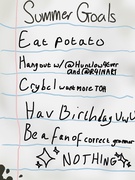 Summer Goals
Eat potato
Hangout w/@Hunlow4ever
and@R41NART
Cry bc I want more TOH
Hav Birthday UwU
Be a fan of correct grammer
NOTHING